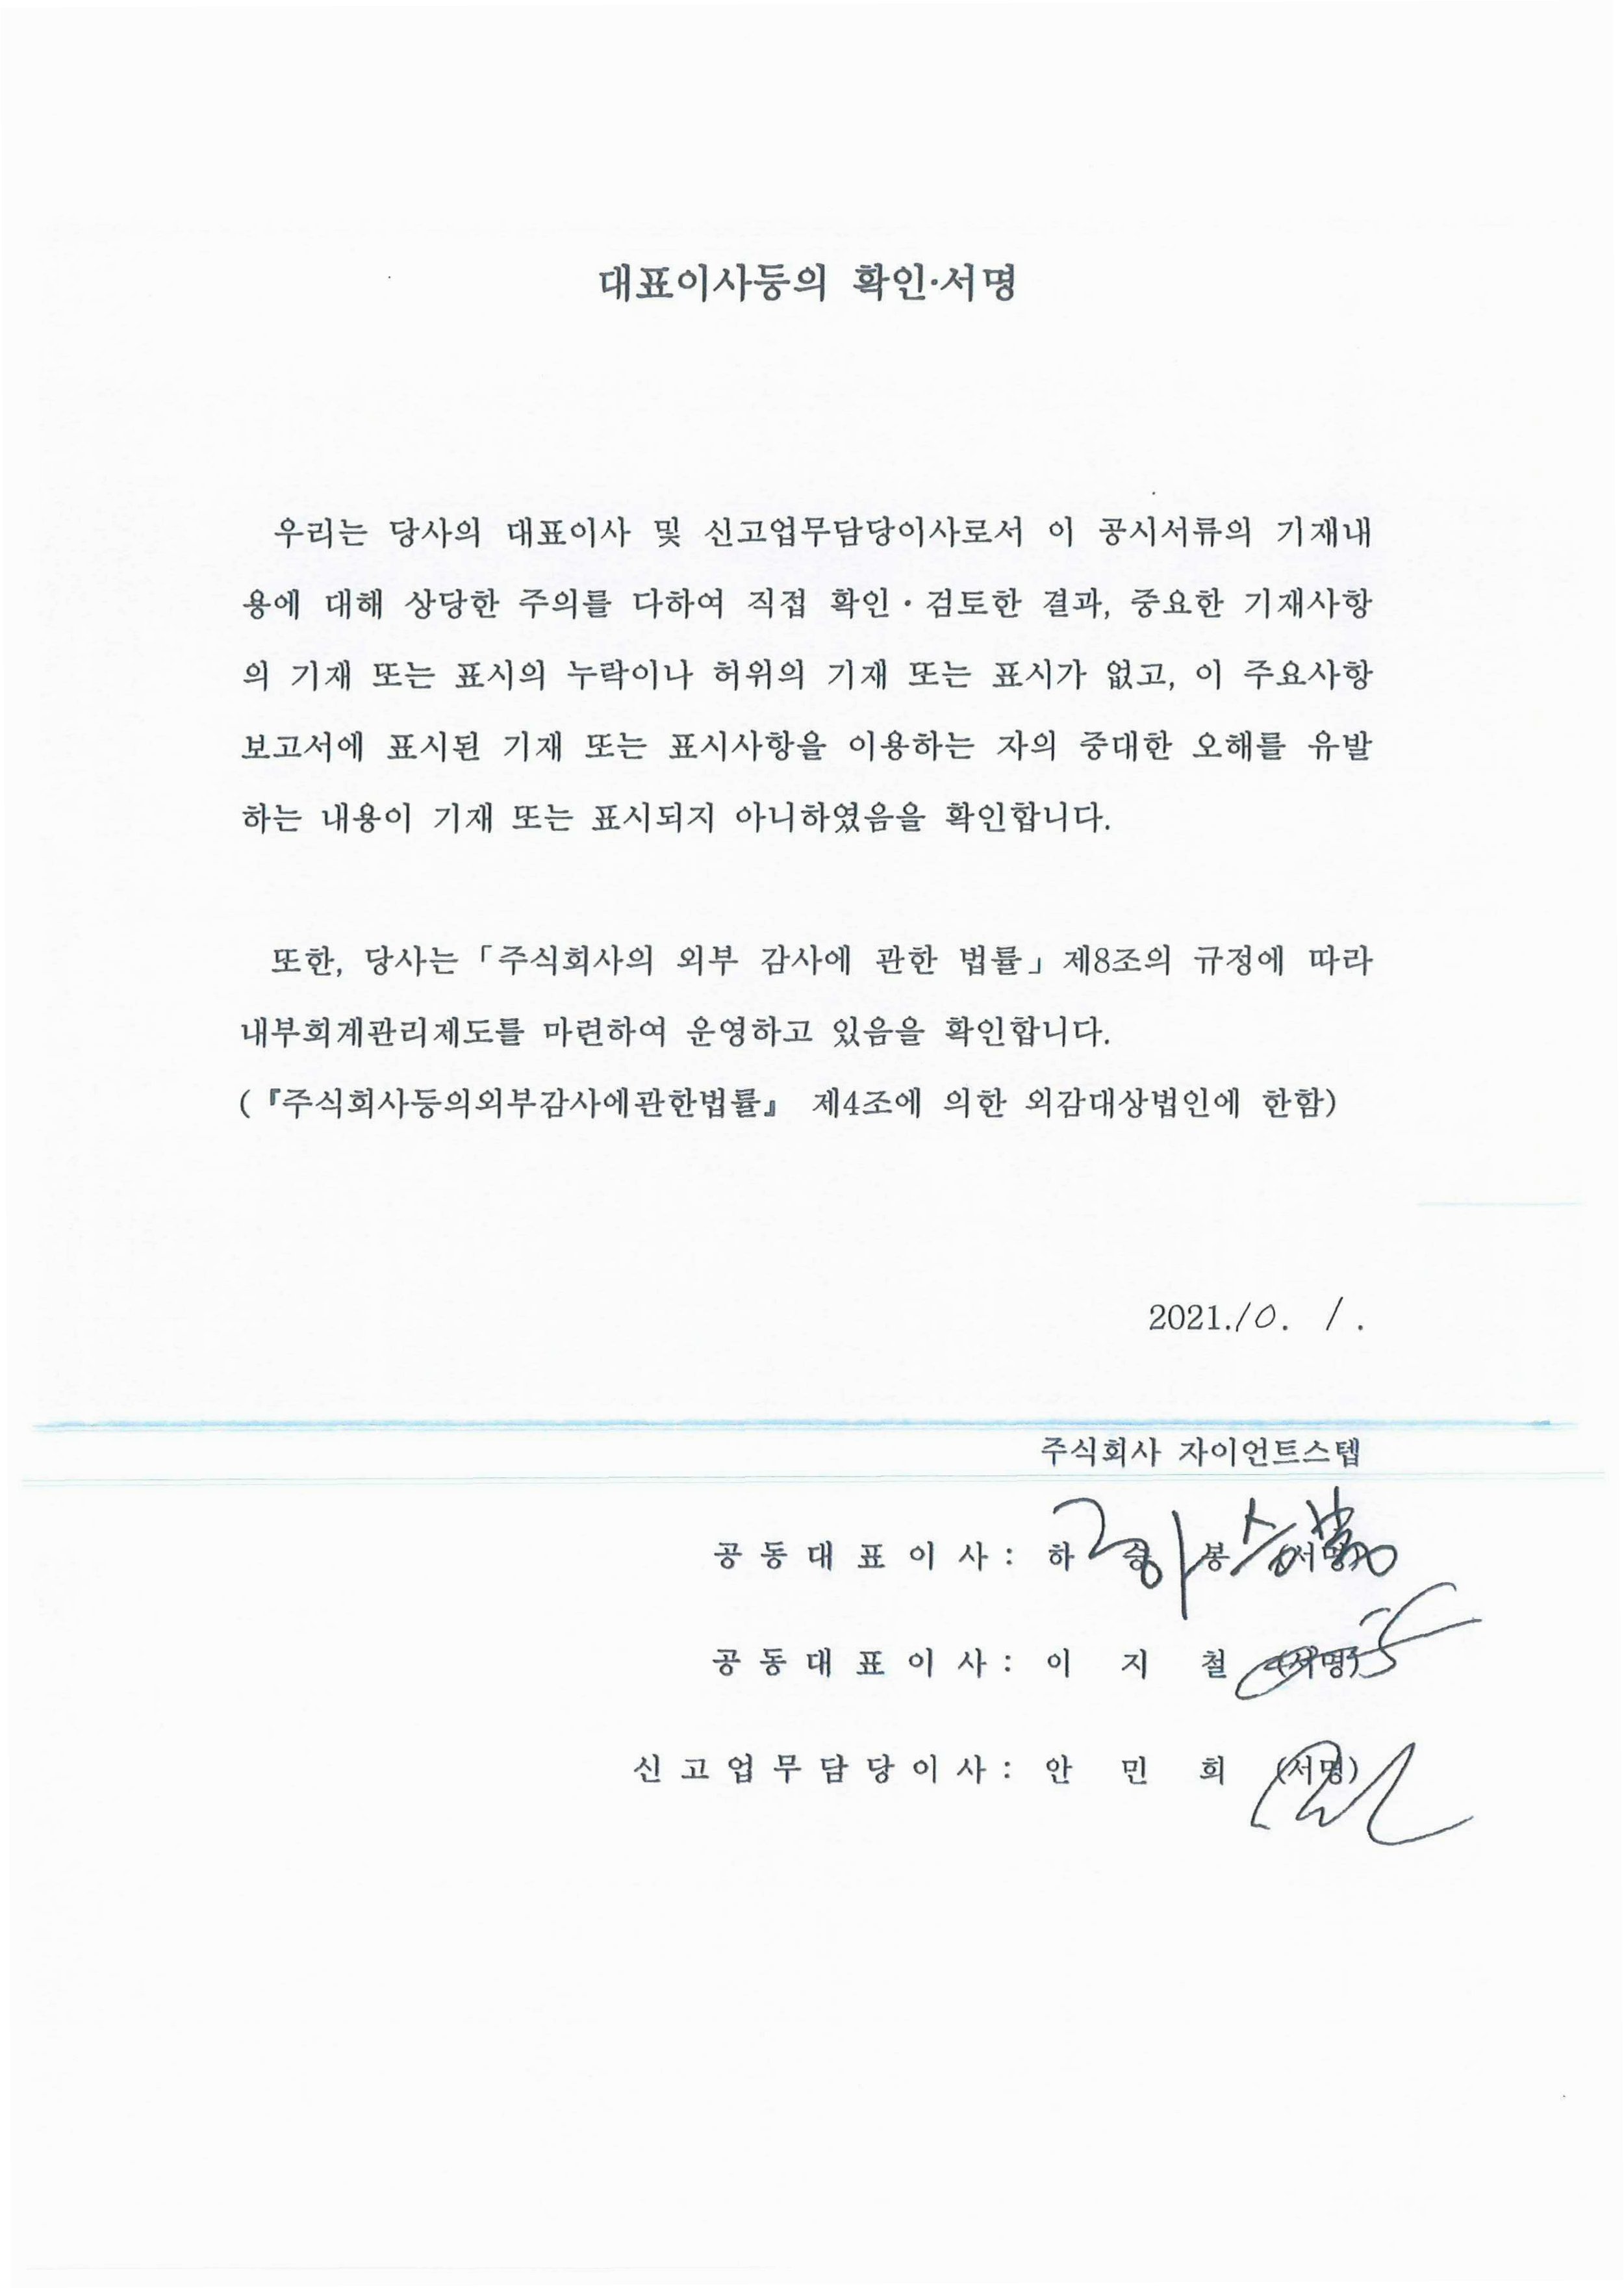 대표이사등의 확인·서명
우리는 당사의 대표이사 및 신고업무담당이사로서 이 공시서류의 기재내
용에 대해 상당한 주의를 다하여 직접 확인·검토한 결과, 중요한 기재사항
의 기재 또는 표시의 누락이나 허위의 기재 또는 표시가 없고, 이 주요사항
보고서에 표시된 기재 또는 표시사항을 이용하는 자의 중대한 오해를 유발
하는 내용이 기재 또는 표시되지 아니하였음을 확인합니다.
또한, 당사는「주식회사의 외부 감사에 관한 법률」제8조의 규정에 따라
내부회계관리제도를 마련하여 운영하고 있음을 확인합니다.
(『주식회사등의외부감사에관한법률』 제4조에 의한 외감대상법인에 한함)
2021.10. 1.
주식회사 자이언트스텝
공동대표이사: 하 승 봉 (서명) 하승봉
공동대표이사: 이 지 철 (서명)
신고업무담당이사: 안 민 희 (서명)